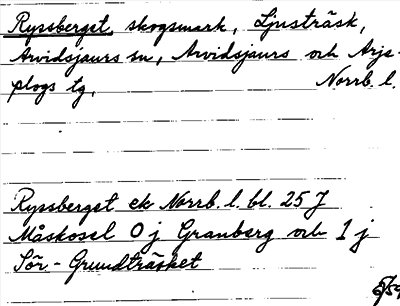 Ryssberget, skogsmark, Ljusträsk,
Arvidsjaurs sn, Arvidsjaurs och Arje-
plogs tg, Norrb. l.
Ryssberget ek Norrb. l. bl. 25 J
Måskosel 0 j Granberg och 1 j
Sör.-Grundträsket